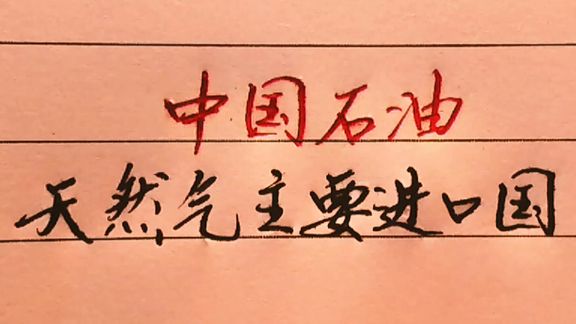 中国石油
天然气主要进口国